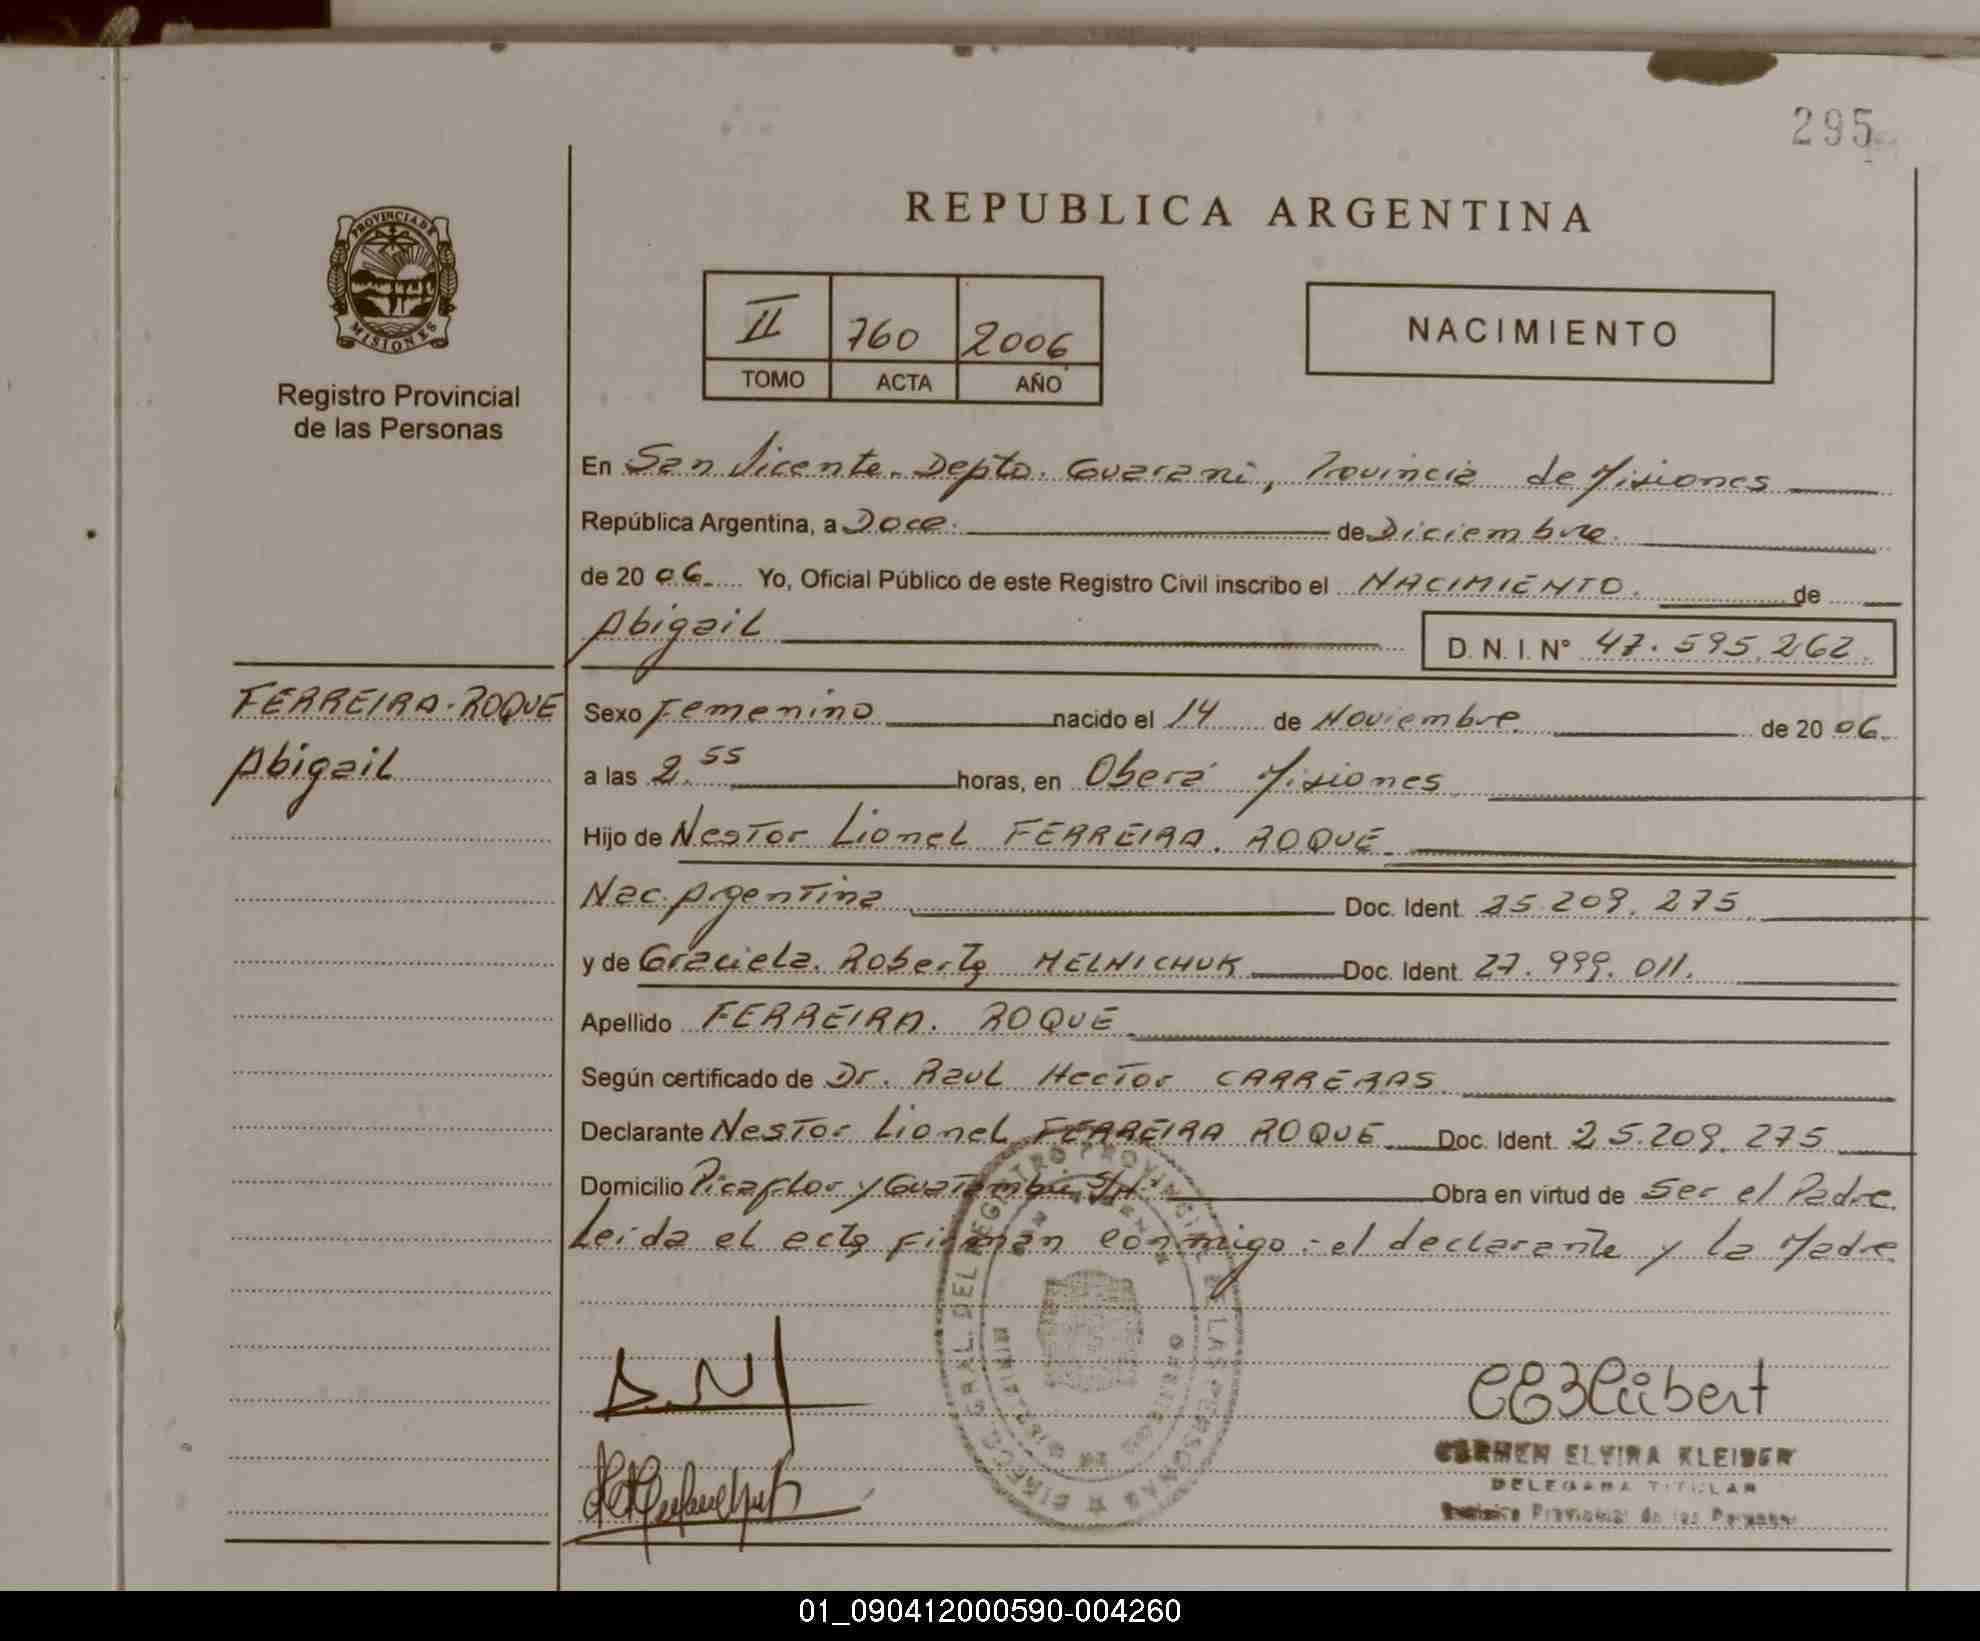 295
PROVINCIA DE
MISIONES
Registro Provincial
de las Personas
REPUBLICA ARGENTINA
II 760 2006
TOMO ACTA AÑO
NACIMIENTO
En San Vicente. Depto. Guarani, Provincia de Misiones
República Argentina, a Doce. de Diciembre.
de 20 06. Yo, Oficial Público de este Registro Civil inscribo el NACIMIENTO. de
Abigail D. N. I. N° 47.595.262.
FERREIRA. ROQUE
Abigail
Sexo Femenino nacido el 14 de Noviembre. de 20 06.
a las 2.55 horas, en Oberá Misiones
Hijo de Nestor Lionel FERREIRA. ROQUE
Nac. Argentina Doc. Ident. 25.209.275
y de Graciela. Roberta MELNICHUK Doc. Ident. 27.999.011.
Apellido FERREIRA. ROQUE
Según certificado de Dr. Raul Hector CARRERAS
Declarante Nestor Lionel FERREIRA ROQUE Doc. Ident. 25.209.275
Domicilio Picaflor y Guatambú. S/N. Obra en virtud de Ser el Padre.
Leida el acta firman conmigo: el declarante y la Madre
REGISTRO PROVINCIAL DE LAS PERSONAS
CARMEN ELVIRA KLEIBER
DELEGADA TITULAR
Registro Provincial de las Personas
01_090412000590-004260